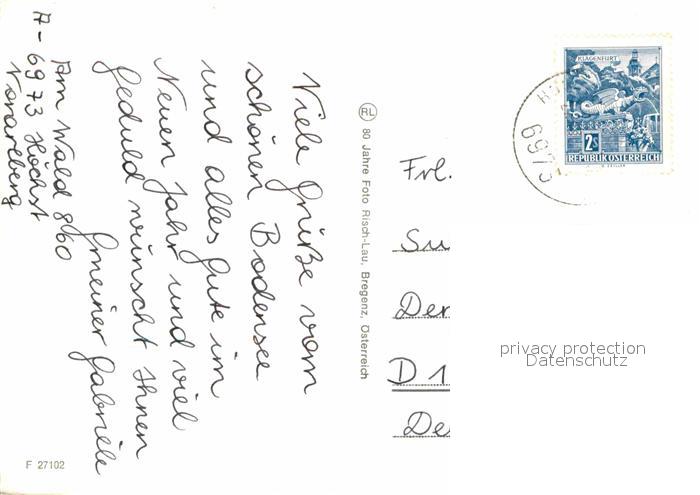 Viele Grüße vom
schönen Bodensee
und alles gute im
Neuen Jahr und viel
geduld wünscht Ihnen
Gmeiner Gabriele
Am Wald 860
A-6973 Höchst
Vorarlberg
RL 80 Jahre Foto Risch-Lau, Bregenz, Österreich
F 27102
KLAGENFURT
2S
REPUBLIK ÖSTERREICH
6973
Frl.
Su
Der
D 1
De
privacy protection
Datenschutz